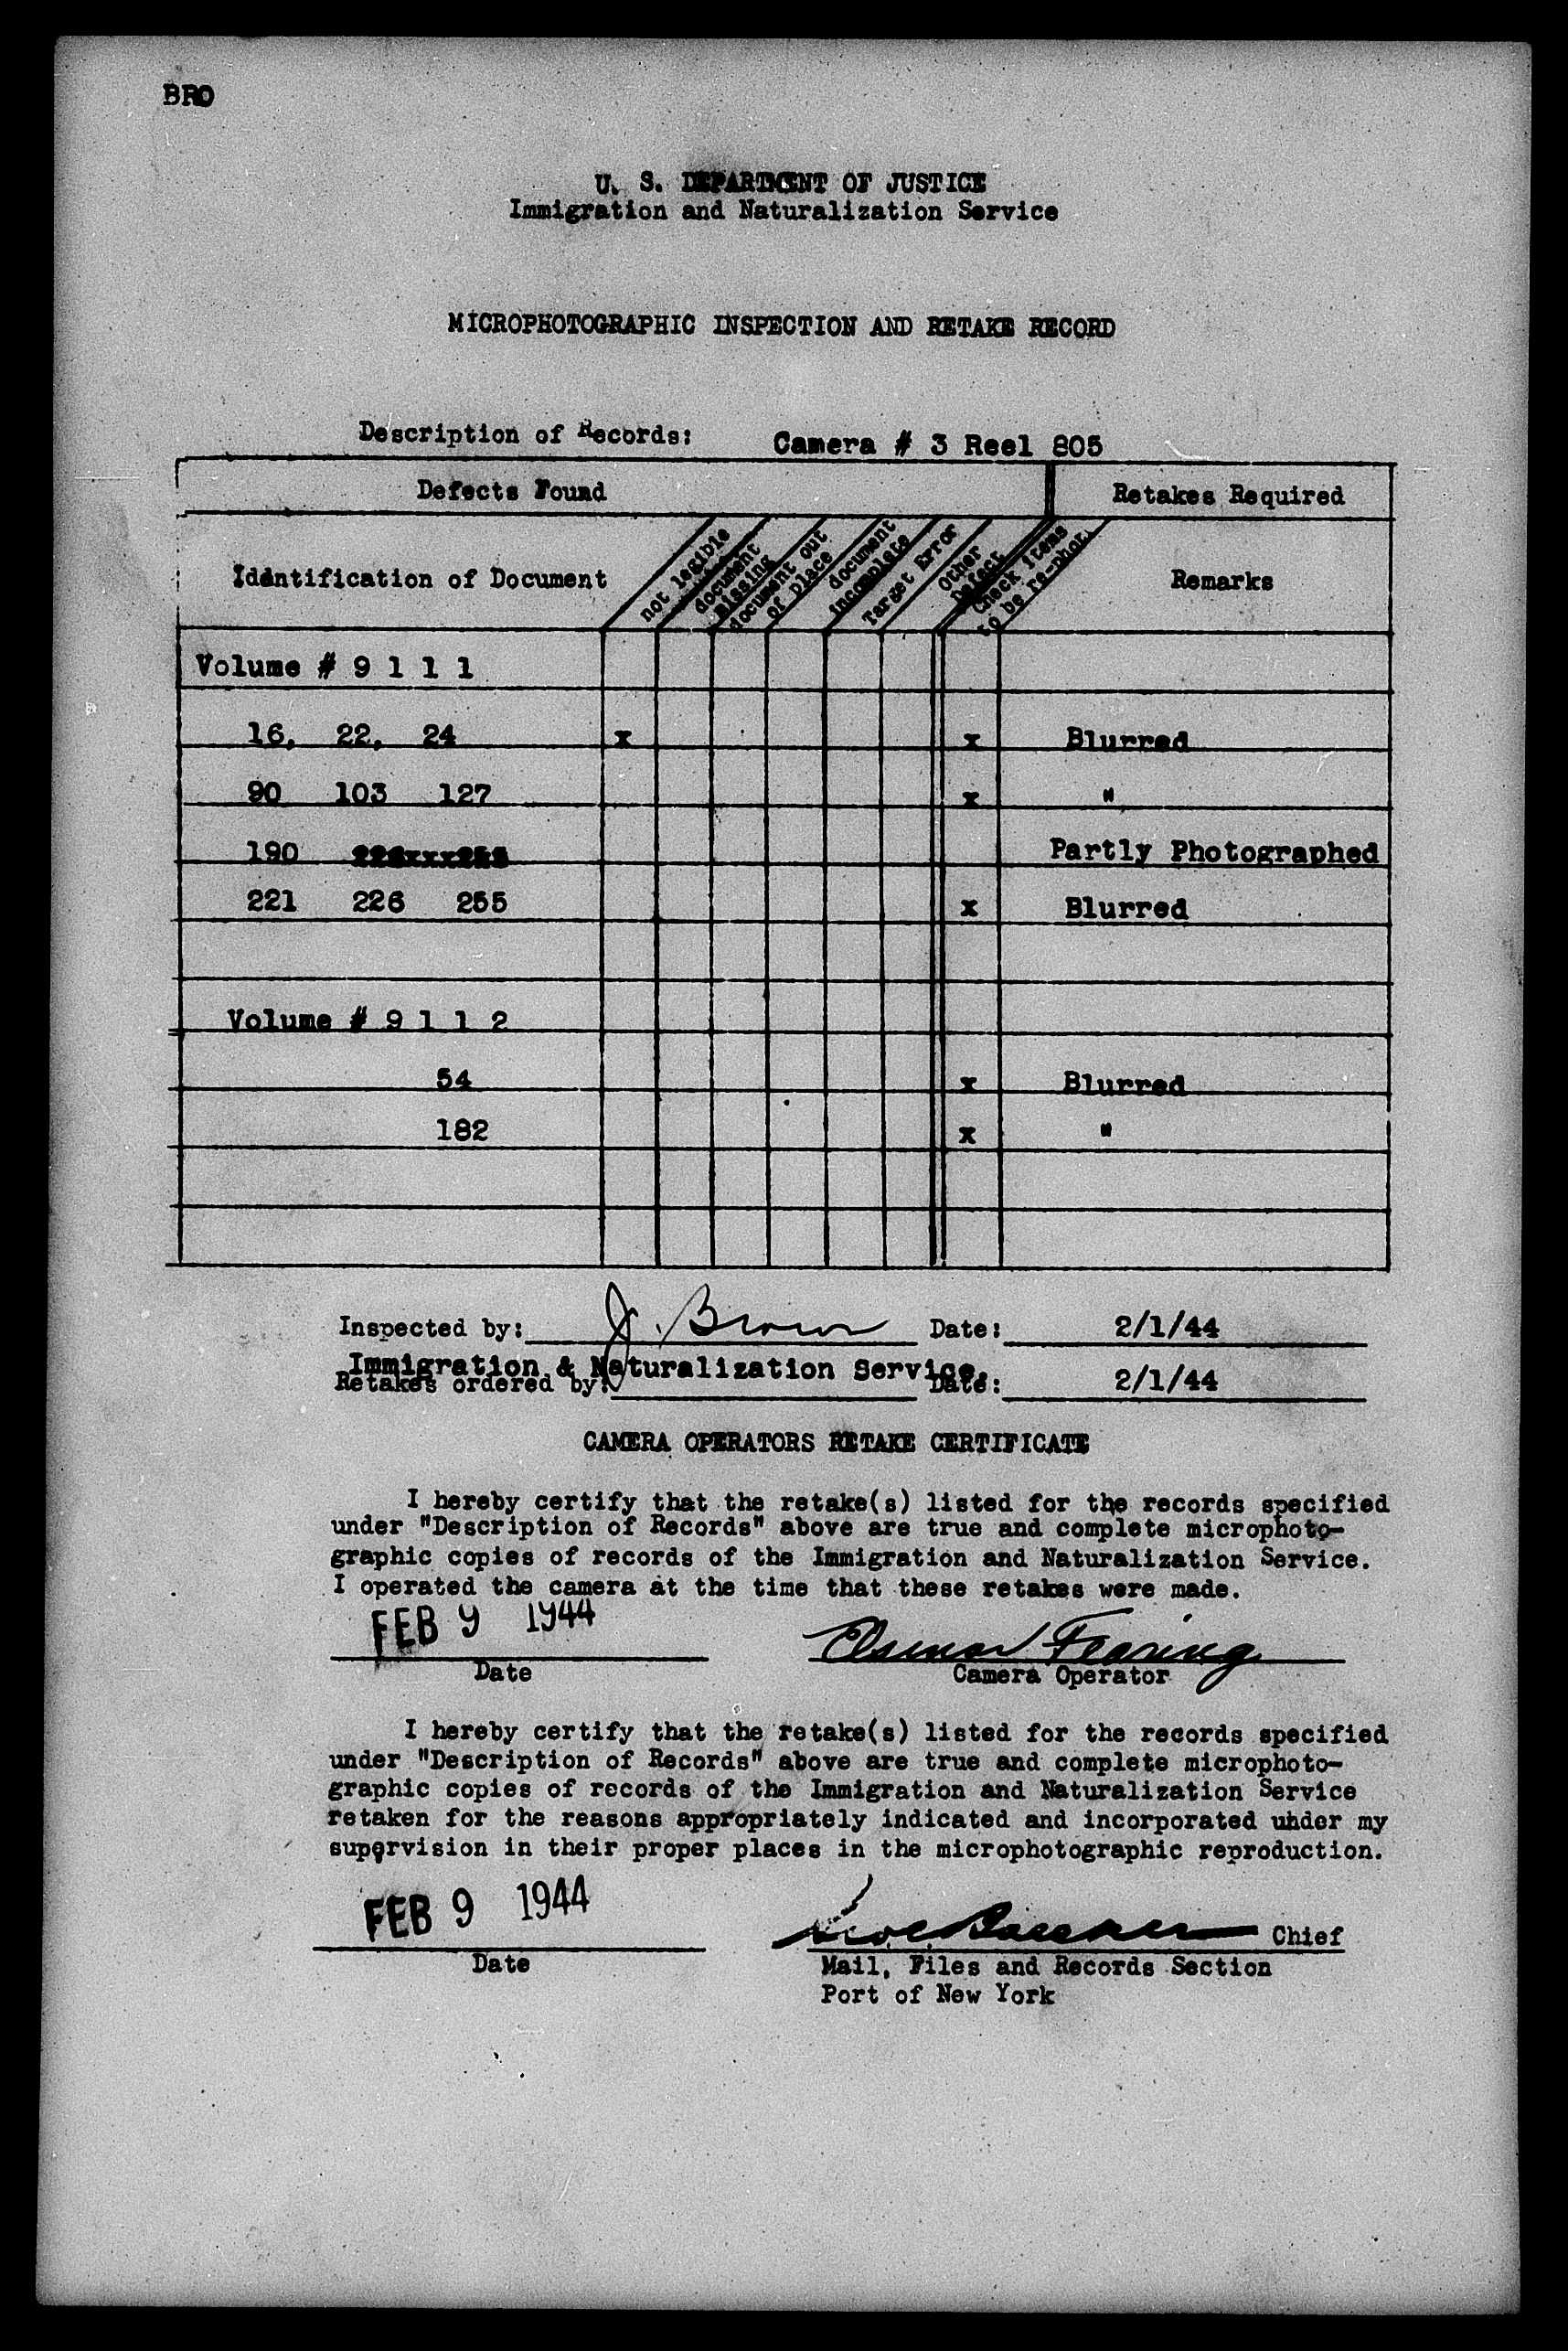 BRO
U. S. DEPARTMENT OF JUSTICE
Immigration and Naturalization Service
MICROPHOTOGRAPHIC INSPECTION AND RETAKE RECORD
Description of Records: Camera # 3 Reel 805
Defects Found Retakes Required
Identification of Document not legible document missing document out of place document incomplete Target Error Other Defect Check items to be re-phot. Remarks
Volume # 9 1 1 1
16, 22, 24 x x Blurred
90 103 127 x "
190 Partly Photographed
221 226 255 x Blurred
Volume # 9 1 1 2
54 x Blurred
182 x "
Inspected by: J. Brown Date: 2/1/44
Immigration & Naturalization Service.
Retakes ordered by: Date: 2/1/44
CAMERA OPERATORS RETAKE CERTIFICATE
I hereby certify that the retake(s) listed for the records specified
under "Description of Records" above are true and complete microphoto-
graphic copies of records of the Immigration and Naturalization Service.
I operated the camera at the time that these retakes were made.
FEB 9 1944 Fearing
Date Camera Operator
I hereby certify that the retake(s) listed for the records specified
under "Description of Records" above are true and complete microphoto-
graphic copies of records of the Immigration and Naturalization Service
retaken for the reasons appropriately indicated and incorporated uhder my
supervision in their proper places in the microphotographic reproduction.
FEB 9 1944 Chief
Date Mail, Files and Records Section
Port of New York